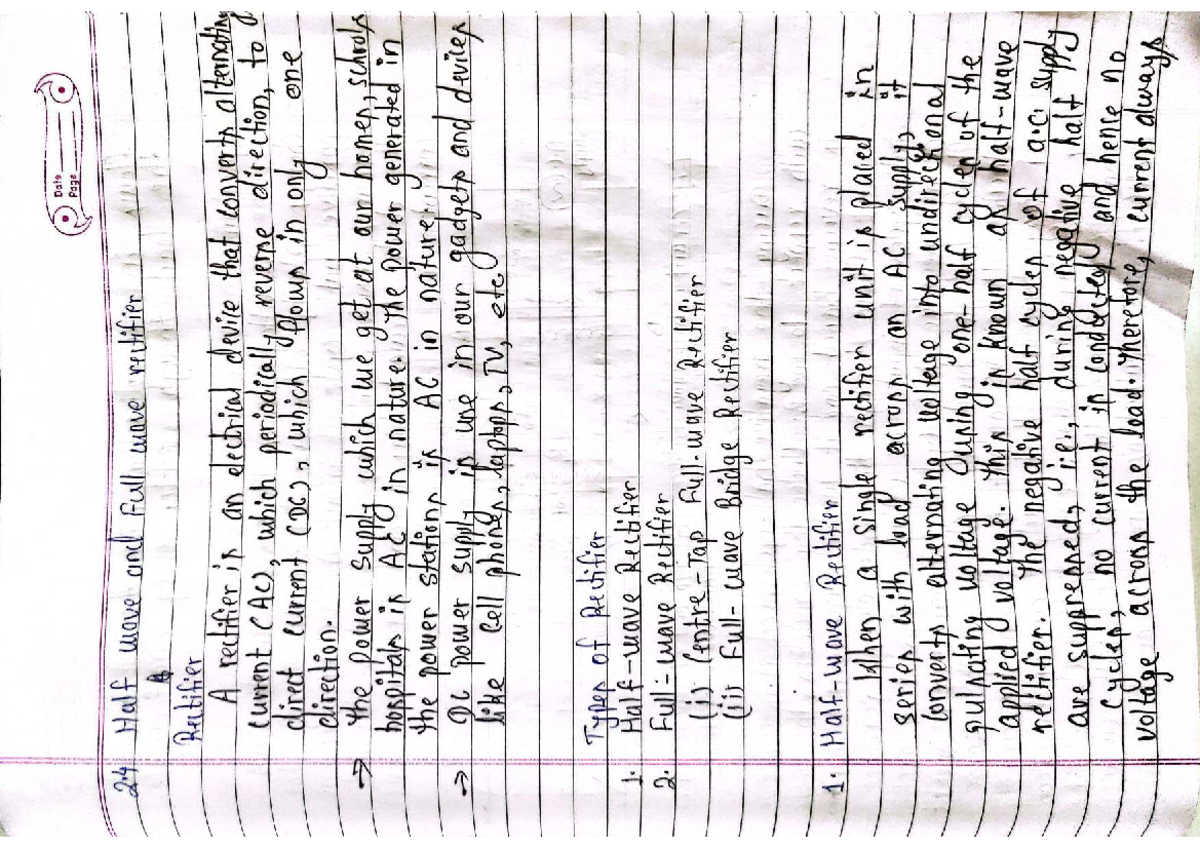 Date
Page
2.4 Half wave and Full wave rectifier
Rectifier
A rectifier is an electrical device that converts alternating
current (AC), which periodically reverse direction, to
direct current (DC), which flows in only one
direction.
→ The power supply which we get at our homes, schools
hospitals is AC in nature. The power generated in
the power stations is AC in nature.
→ DC power supply is use in our gadgets and devices
like cell phones, laptops, TV, etc.
Types of Rectifier
1. Half-wave Rectifier
2. Full-wave Rectifier
(i) Centre-Tap Full-wave Rectifier
(ii) Full-wave Bridge Rectifier
1. Half-wave Rectifier
When a single rectifier unit is placed in
series with load across an AC supply, it
converts alternating voltage into undirectional
pulsating voltage, using one-half cycles of the
applied voltage. This is known as half-wave
rectifier. The negative half cycles of a.c. supply
are suppressed, i.e., during negative half
cycles, no current is conducted and hence no
voltage across the load. Therefore, current always